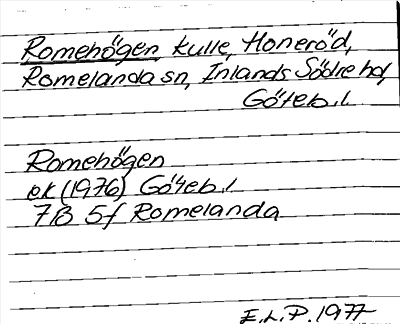 Romehögen, kulle, Honeröd,
Romelanda sn, Inlands Södre hd,
Göteb. l.
Romehögen
ek (1976) Göteb. l
7B 5f Romelanda
E.L.P. 1977